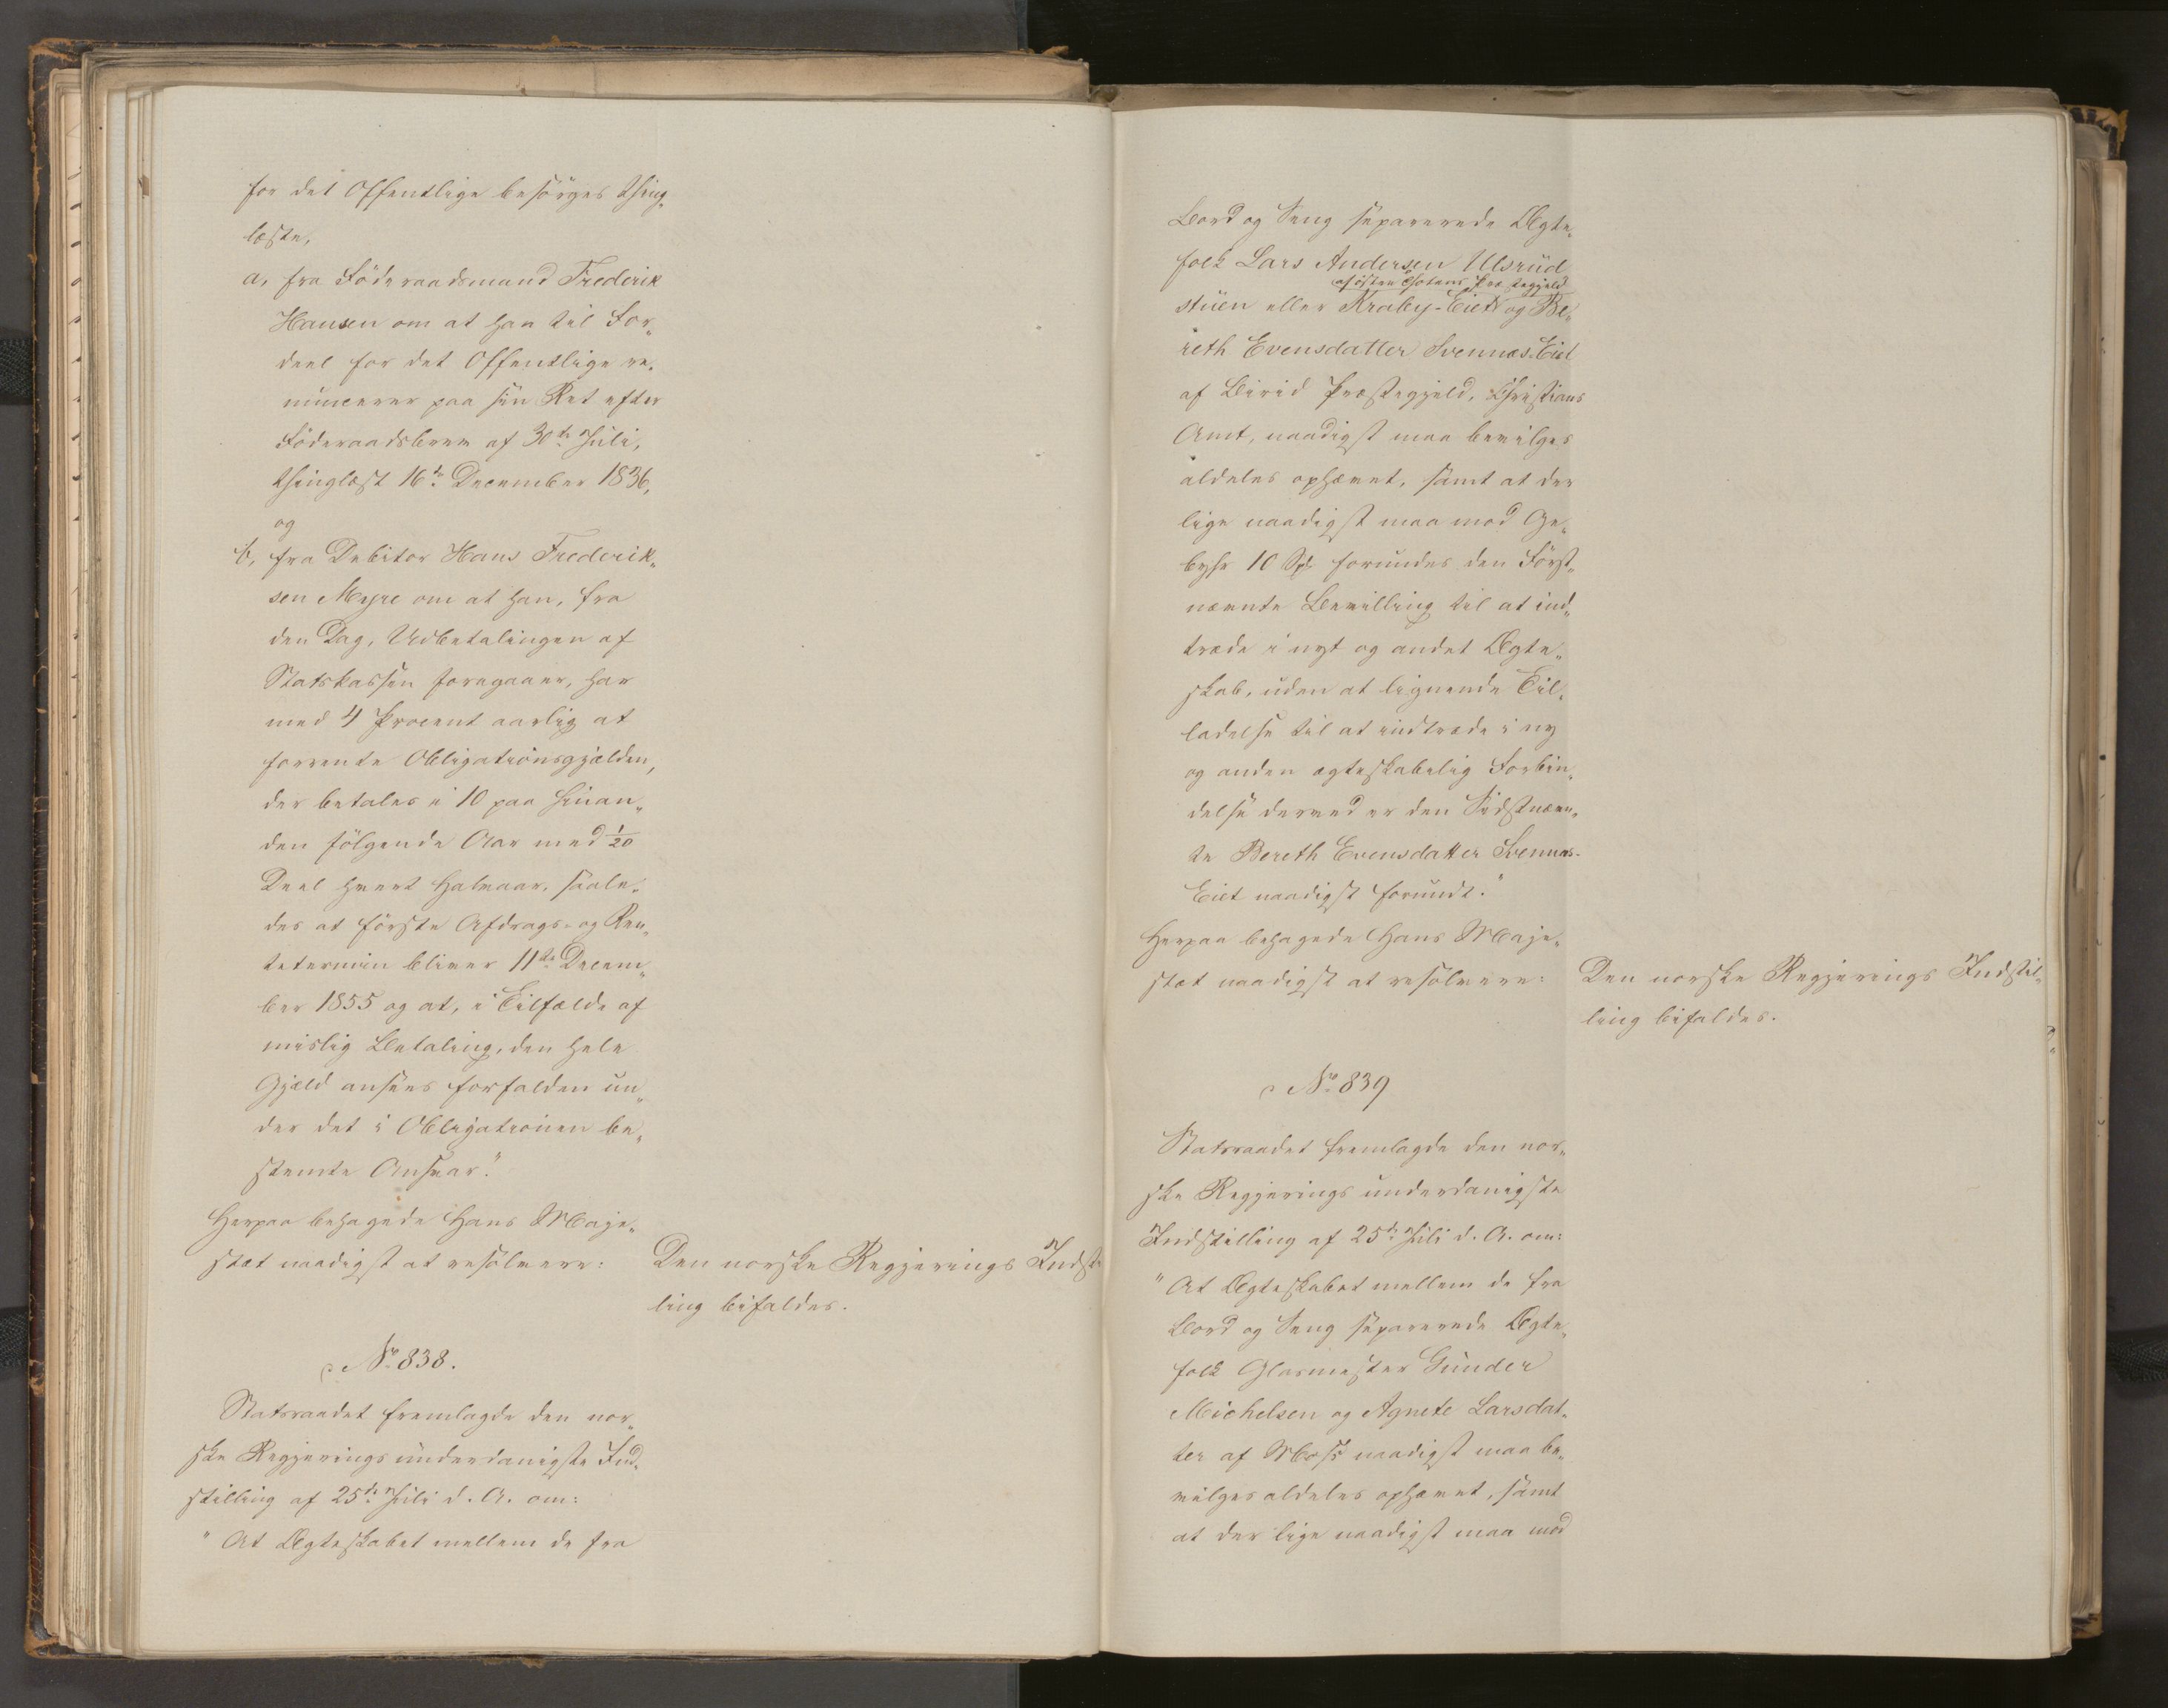 for det Offentlige besörges thing„
læste,
a, fra Föderaadsmand Frederik
Hansen om at han til For„
deel for det Offentlige re„
nuncerer paa sin Ret efter
Föderaadsbrev af 30te Juli,
thinglæst 16de December 1836,
og
b, fra Debitor Hans Frederik„
sen Myre om at han, fra
den Dag, Udbetalingen af
Statskassen foregaaer, har
med 4 Procent aarlig at
forrente Obligationsgjælden,
der betales i 10 paa hinan„
den fölgende Aar med 1/20
Deel hvert Halvaar, saale„
des at förste Afdrags- og Ren„
tetermin bliver 11te Decem„
ber 1855 og at, i Tilfælde af
mislig Betaling, den hele
Gjæld ansees forfalden un„
der det i Obligationen be„
stemte Ansvar."
Herpaa behagede Hans Maje„
stæt naadigst at resolvere:
Den norske Regjerings Indst
ling bifaldes.
No 838.
Statsraadet fremlagde den nor„
ske Regjerings underdanigste Ind„
stilling af 25de Juli d. A. om:
"At Ægteskabet mellem de fra
Bord og Seng separerede Ægte„
folk Lars Andersen Ulsrud
af östre Thotens Præstegjeld
stuen eller Kraby-Eiet og Be„
reth Evensdatter Svennæs-Eiet
af Birid Præstegjeld, Christians
Amt, naadigst maa bevilges
aldeles ophævet, samt at der
lige naadigst maa mod Ge„
byhr 10 Spd forundes den Först„
nævnte Bevilling til at ind„
træde i nyt og andet Ægte„
skab, uden at lignende Til„
ladelse til at indtræde i ny
og anden ægteskabelig Forbin„
delse derved er den Sidstnævn„
te Bereth Evensdatter Svennæs-
Eiet naadigst forundt."
Herpaa behagede Hans Maje„
stæt naadigst at resolvere:
Den norske Regjerings Indstil„
ling bifaldes.
No 839
Statsraadet fremlagde den nor„
ske Regjerings underdanigste
Indstilling af 25de Juli d. A. om:
"At Ægteskabet mellem de fra
Bord og Seng separerede Ægte„
folk Glasmester Gunder
Michelsen og Agnete Larsdat„
ter af Moss naadigst maa be„
vilges aldeles ophævet, samt
at der lige naadigst maa mod